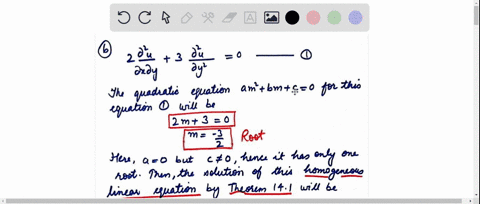 (b) 2 ∂²u/∂x∂y + 3 ∂²u/∂y² = 0 —— ①
The quadratic equation am²+bm+c=0 for this
equation ① will be
2m+3=0
m = -3/2 Root
Here, a=0 but c≠0, hence it has only one
root. Then, the solution of this homogeneous
linear equation by Theorem 14.1 will be